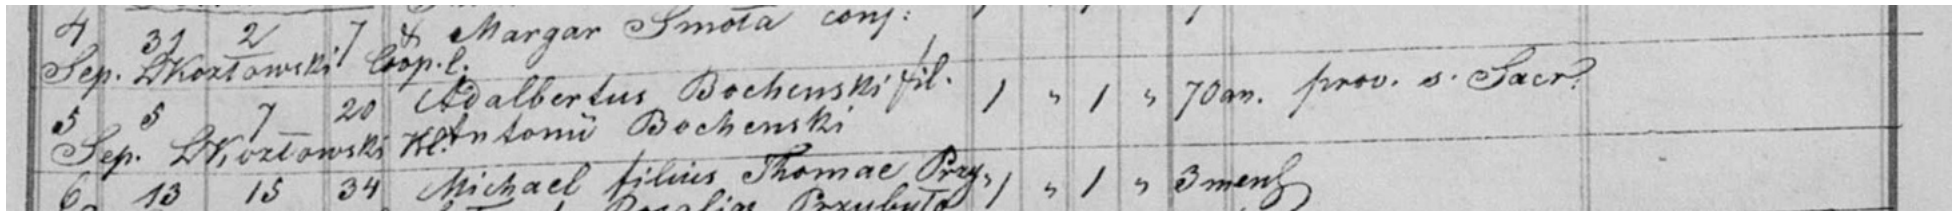 4 31 2 7 & Margar Smota conj:
Sep. D Kozłowski Coop. l.
5 5 7 20 Adalbertus Bochenski fil. 1 " 1 " 70 an. prov. s. Sacr.
Sep. D Kozłowski Antonii Bochenski
6 13 15 34 Michael filius Thomae Przy " 1 " 1 " 3 mens
Rosaliae Przybyło